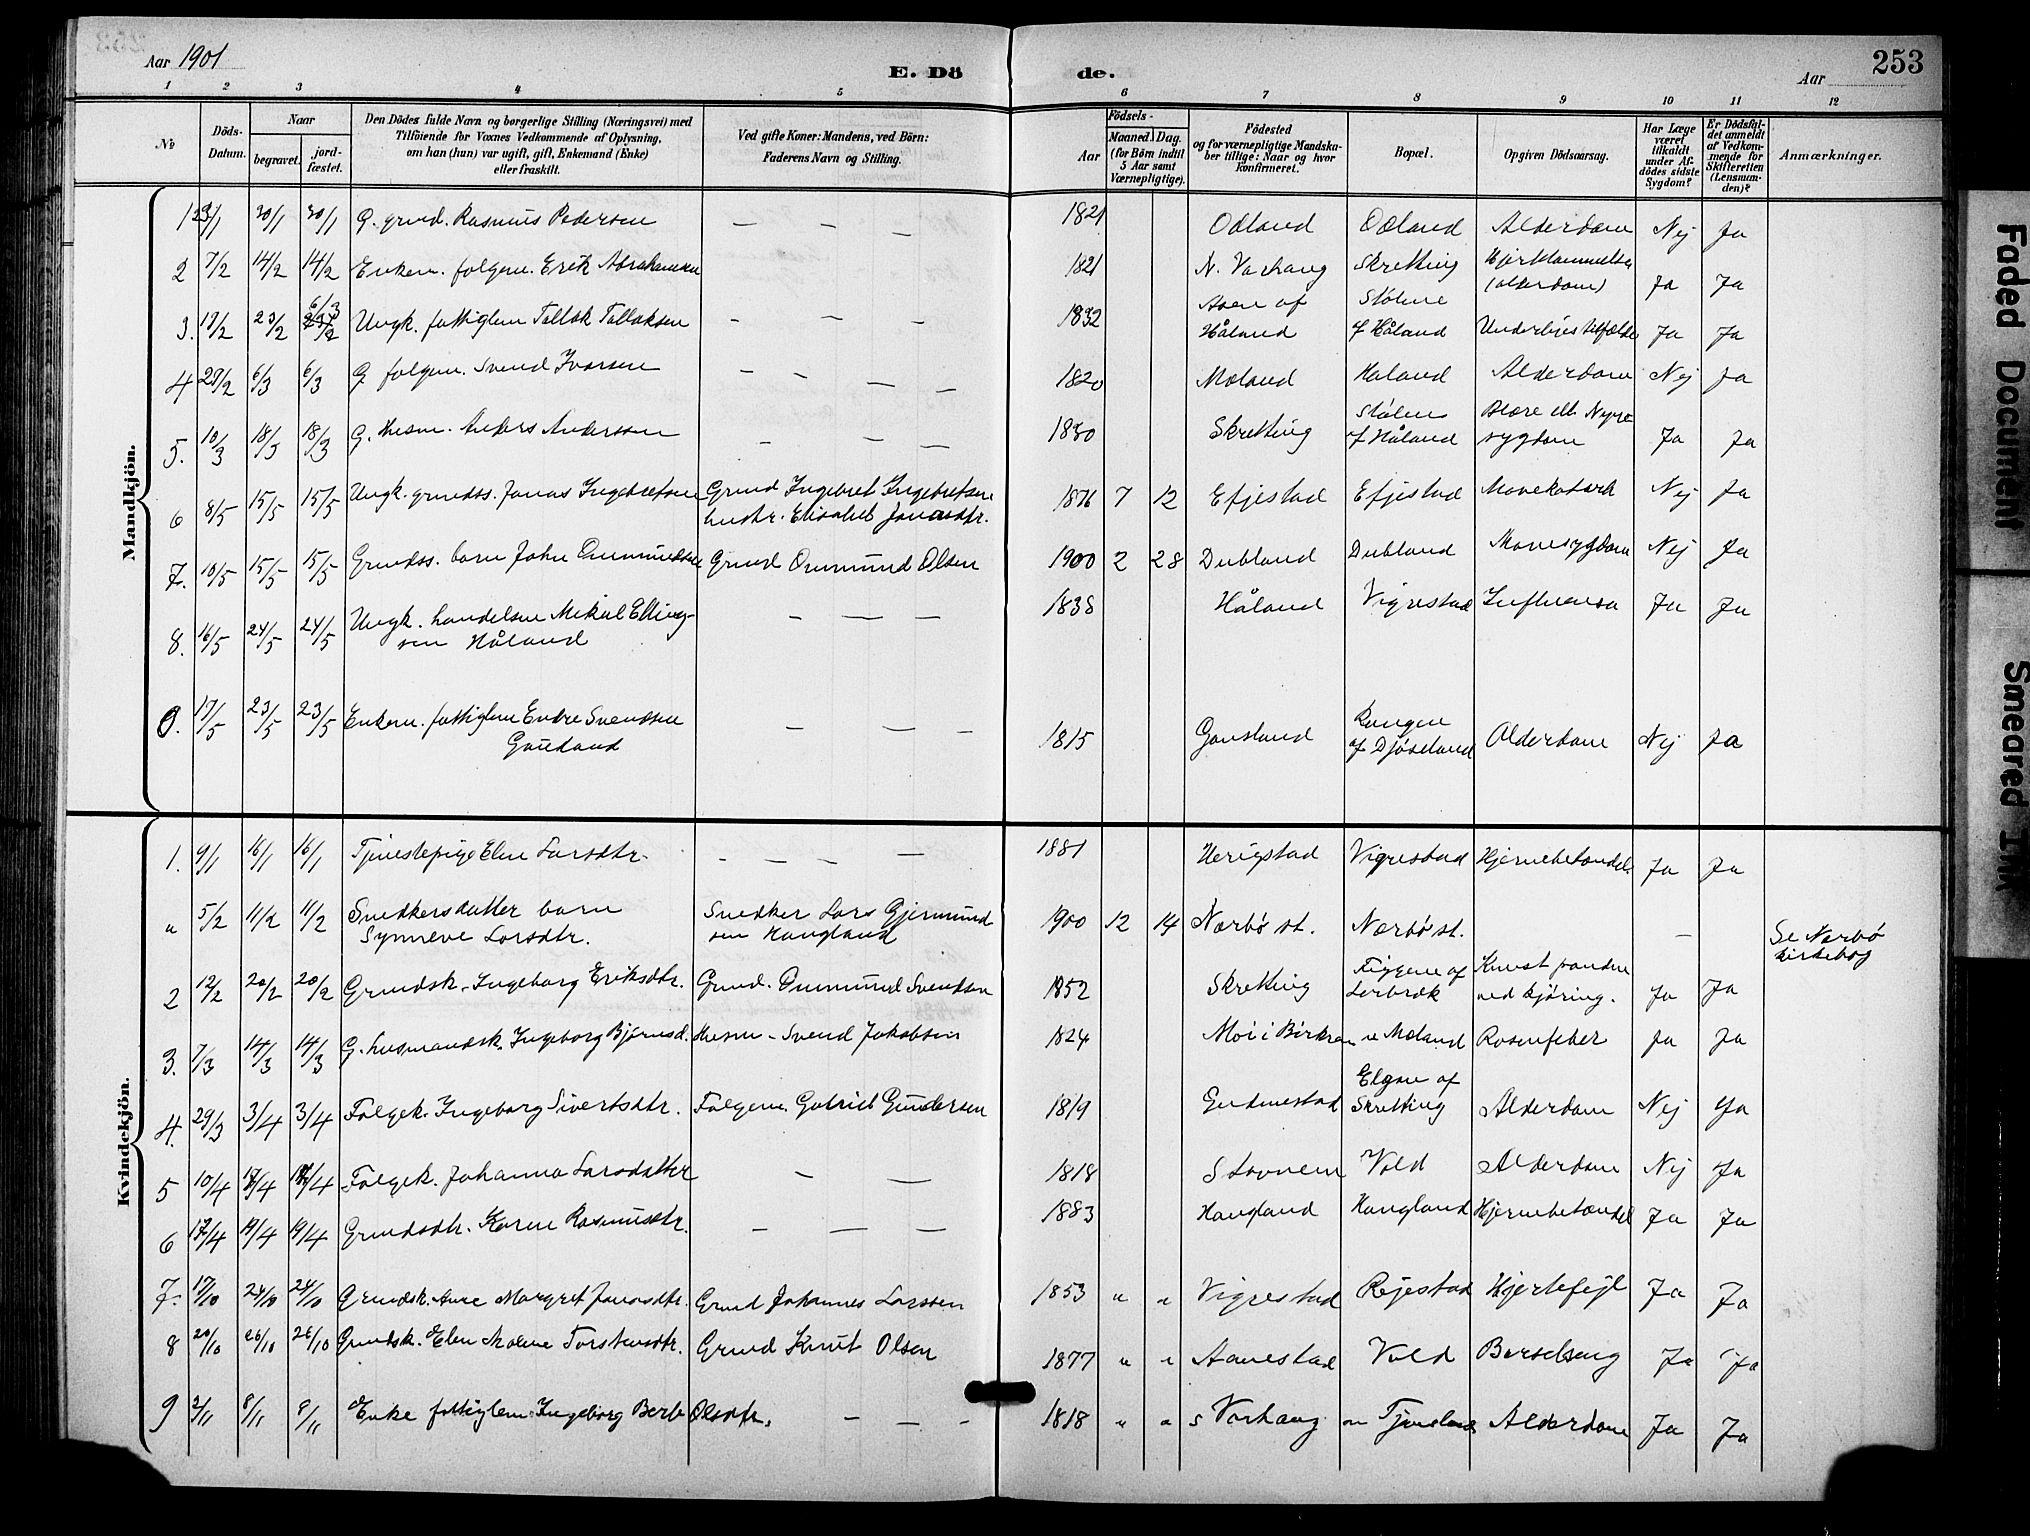 Aar 1901
E. Döde.
Aar
253
1 2 3 4 5 6 7 8 9 10 11 12
No
Döds-Datum.
Naar
begravet.
jord-fæstet.
Den Dödes fulde Navn og borgerlige Stilling (Næringsvei) med
Tilföiende for Voxnes Vedkommende af Oplysning,
om han (hun) var ugift, gift, Enkemand (Enke)
eller fraskilt.
Ved gifte Koner: Mandens, ved Börn:
Faderens Navn og Stilling.
Födsels-
Aar
Maaned. Dag.
(for Børn indtil
5 Aar samt
Værnepligtige).
Födested
og for værnepligtige Mandska-
ber tillige: Naar og hvor
konfirmeret.
Bopæl.
Opgiven Dödsaarsag.
Har Læge
været
tilkaldt
under Af-
dödes sidste
Sygdom?
Er Dödsfal-
det anmeldt
af Vedkom-
mende for
Skifteretten
(Lensman-
den)?
Anmærkninger.
Mandkjön.
1 30/1 30/1 G. grmd. Rasmus Pedersen — — — 1821 Odland Odland Alderdom Nej Ja
2 7/2 14/2 14/2 Enkem. folgem. Erik Abrahamsen 1821 N. Varhaug Skretting (alderdom) Ja Ja
3. 17/2 23/2 6/3 Ungk. fattiglem Tollak Tollaksen — — — 1832 Aasen af Håland Stølene af Håland Underlivstilfælde Ja Ja
4 27/2 6/3 6/3 G. folgem. Svend Ivarsen — — — — 1820 Moland Haland Alderdom Nej Ja
5. 10/3 18/3 18/3 G. Husm. Anders Anderssen — — — 1830 Skretting Stølene af Håland Blære ell. Nyre-sygdom Ja Ja
6 8/5 15/5 15/5 Ungk. grmdss. Jonas Ingebretsen Grmd Ingebret Ingebretsen hustr. Elisabet Jonasdtr. 1876 7 12 Efjestad Efjestad Mavekatarh Nej Ja
7. 10/5 15/5 15/5 Grmdss. barn John Ommundsen Grmd Ommund Olsen 1900 2 28 Dubland Dubland Mavesygdom Nej Ja
8. 16/5 24/5 24/5 Ungk. handelsm Mikal Elling-sen Håland — — — 1838 Håland Vigrestad Influensa Ja Ja
9. 17/5 23/5 23/5 Enkem. fattiglem Endre Svendsen — — — 1815 af Djøseland Alderdom Nej Ja
Kvindekjön.
1. 9/1 16/1 16/1 Tjenestepige Elen Larsdtr. — — — — 1881 Herigstad Vigrestad Hjernebetændel. Ja Ja
" 5/2 11/2 11/2 Snedkersdatter barn Synneve Larsdtr. Snedker Lars Gjermundsen Haugland 1900 12 14 Nærbø st. Nærbø st. — Se Nærbø kirkebog
2 12/2 20/2 20/2 Grmdsk. Ingeborg Eriksdtr. Grmd. Ommund Svendsen 1852 Skretting Knust panden ved kjøring. Ja Ja
3. 7/3 14/3 14/3 G. husmandsk. Ingeborg Bjørnsd. Husm. Svend Jakobsen 1824 Moi i Birkrem Moland Rosenfeber Ja Ja
4. 29/3 3/4 3/4 Folgek. Ingeborg Sivertsdtr. Folgem. Gabriel Gundersen 1819 Gudmestad Elgane af Skretting Alderdom Nej Ja
5 10/4 Folgek. Johanna Larsdatter — — 1818 Stavnem Vold Alderdom Nej Ja
6 12/4 19/4 19/4 Grmdsdtr. Karen Rasmusdtr. — — — 1883 Haugland Haugland Hjernebetændel Ja Ja
7. 17/10 24/10 24/10 Grmdsk. Ane Margret Jonasdtr. Grmd Johannes Larssen 1853 " " Vigrestad Rejestad Hjertefejl Ja Ja
8 20/10 26/10 26/10 Grmdsk. Elen Malene Torstensdtr. Grmd Knut Olsen 1877 " " Aanestad Vold Barselseng Ja Ja
9 2/11 8/11 8/11 Enke fattiglem Ingeborg Berte Olsdtr. — — — 1818 " " S Varhaug Alderdom Ja Ja
Faded Document
Smeared Ink